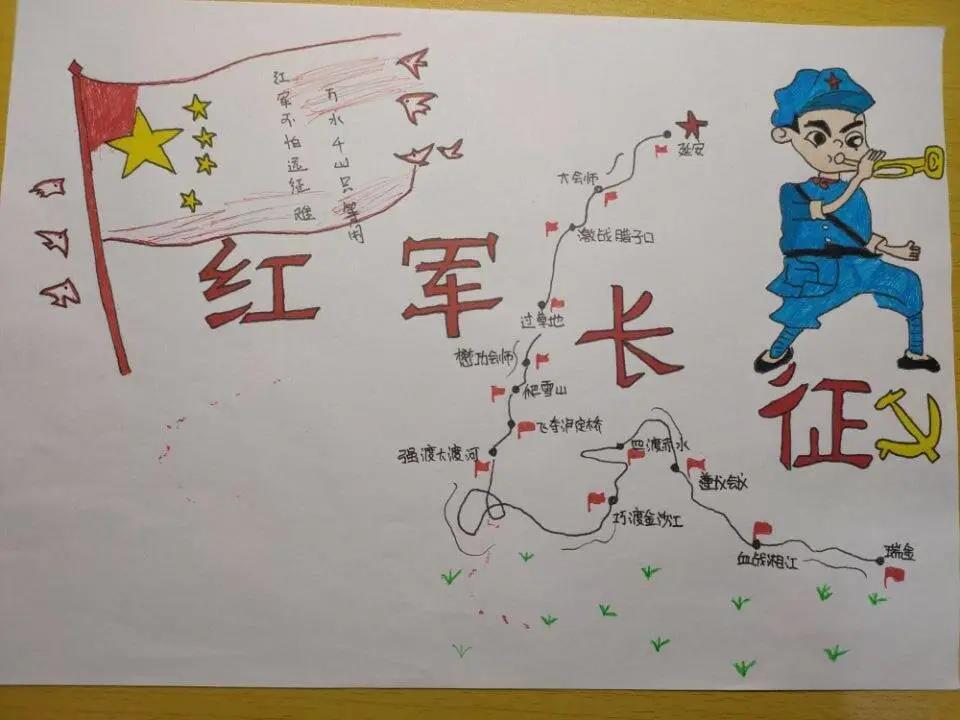 红军不怕远征难
万水千山只等闲
红军长征
延安
大会师
激战腊子口
过草地
懋功会师
爬雪山
飞夺泸定桥
强渡大渡河
四渡赤水
遵义会议
巧渡金沙江
血战湘江
瑞金